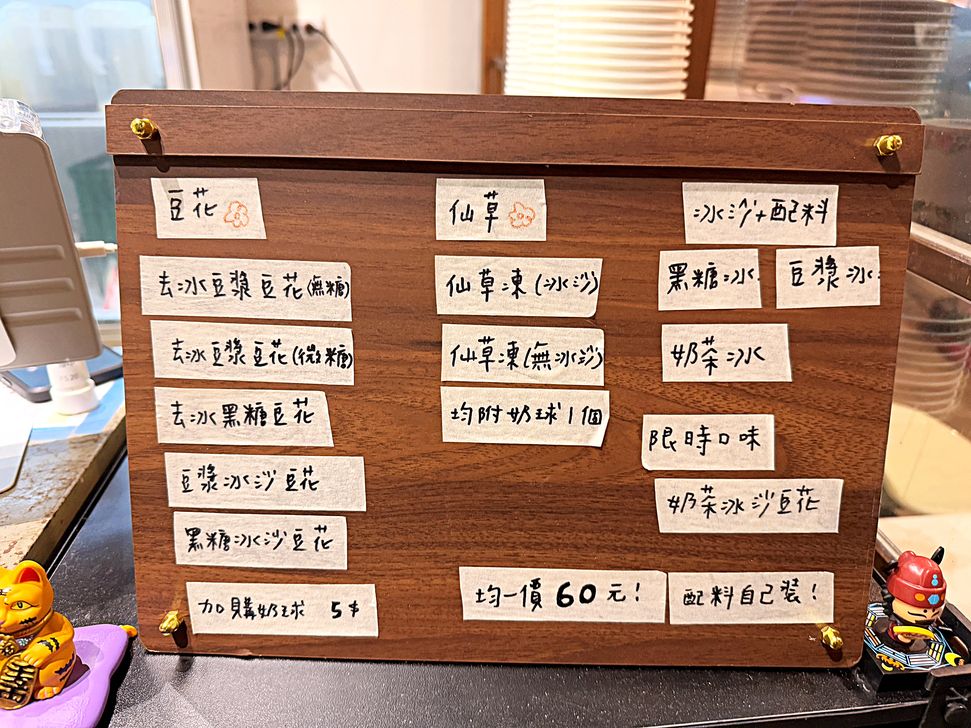 豆花
去冰豆漿豆花(無糖)
去冰豆漿豆花(微糖)
去冰黑糖豆花
豆漿冰沙豆花
黑糖冰沙豆花
加購奶球 5$
仙草
仙草凍(冰沙)
仙草凍(無冰沙)
均附奶球1個
冰沙+配料
黑糖冰. 豆漿冰.
奶茶冰
限時口味
奶茶冰沙豆花
均一價60元!
配料自己裝!